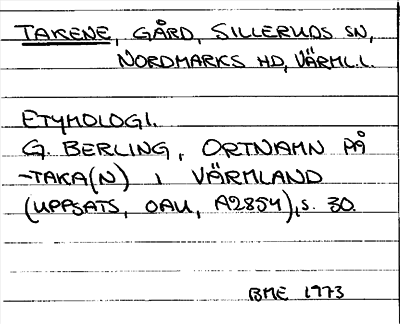 TAKENE, GÅRD, SILLERUDS SN,
NORDMARKS HD, VÄRML.L.
ETYMOLOGI.
G. BERLING, ORTNAMN PÅ
-TAKA(N) I VÄRMLAND
(UPPSATS, OAU, A2854), s. 30.
BME 1973